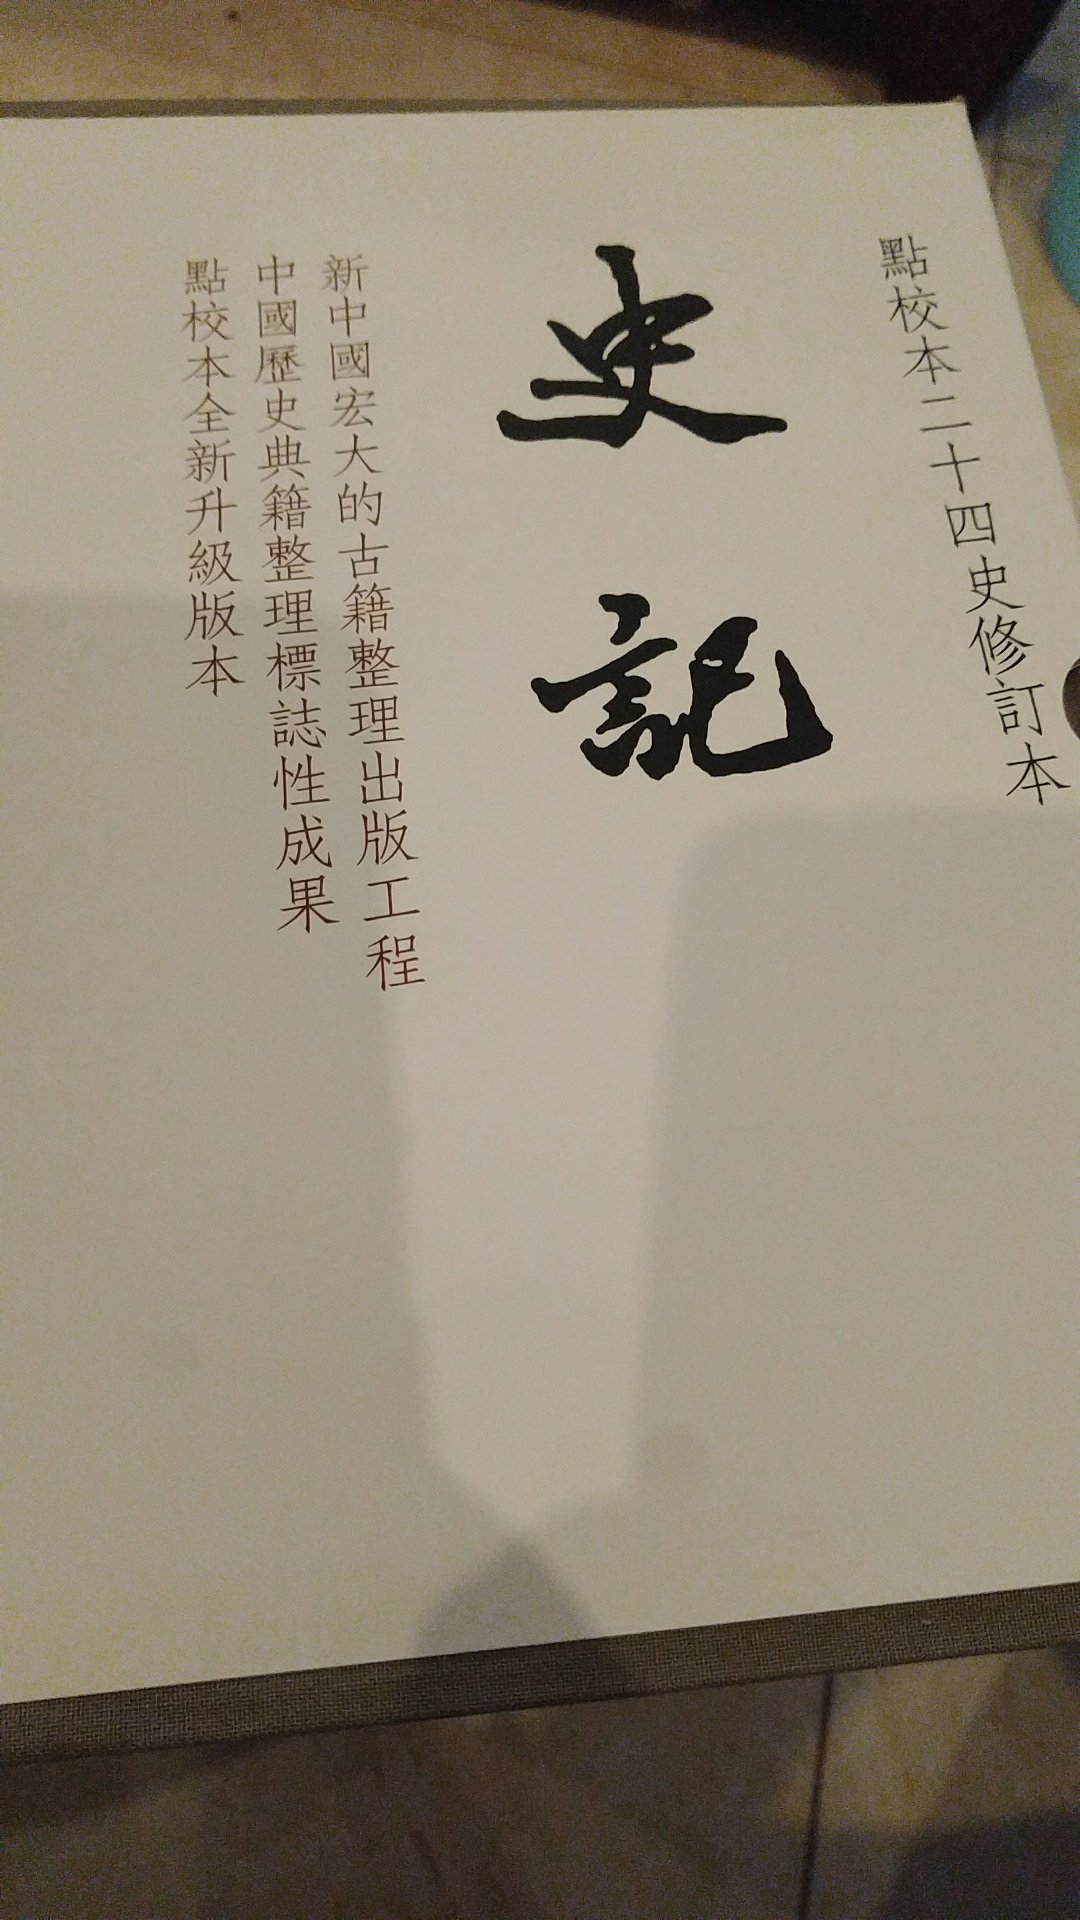 點校本二十四史修訂本
史記
新中國宏大的古籍整理出版工程
中國歷史典籍整理標誌性成果
點校本全新升級版本